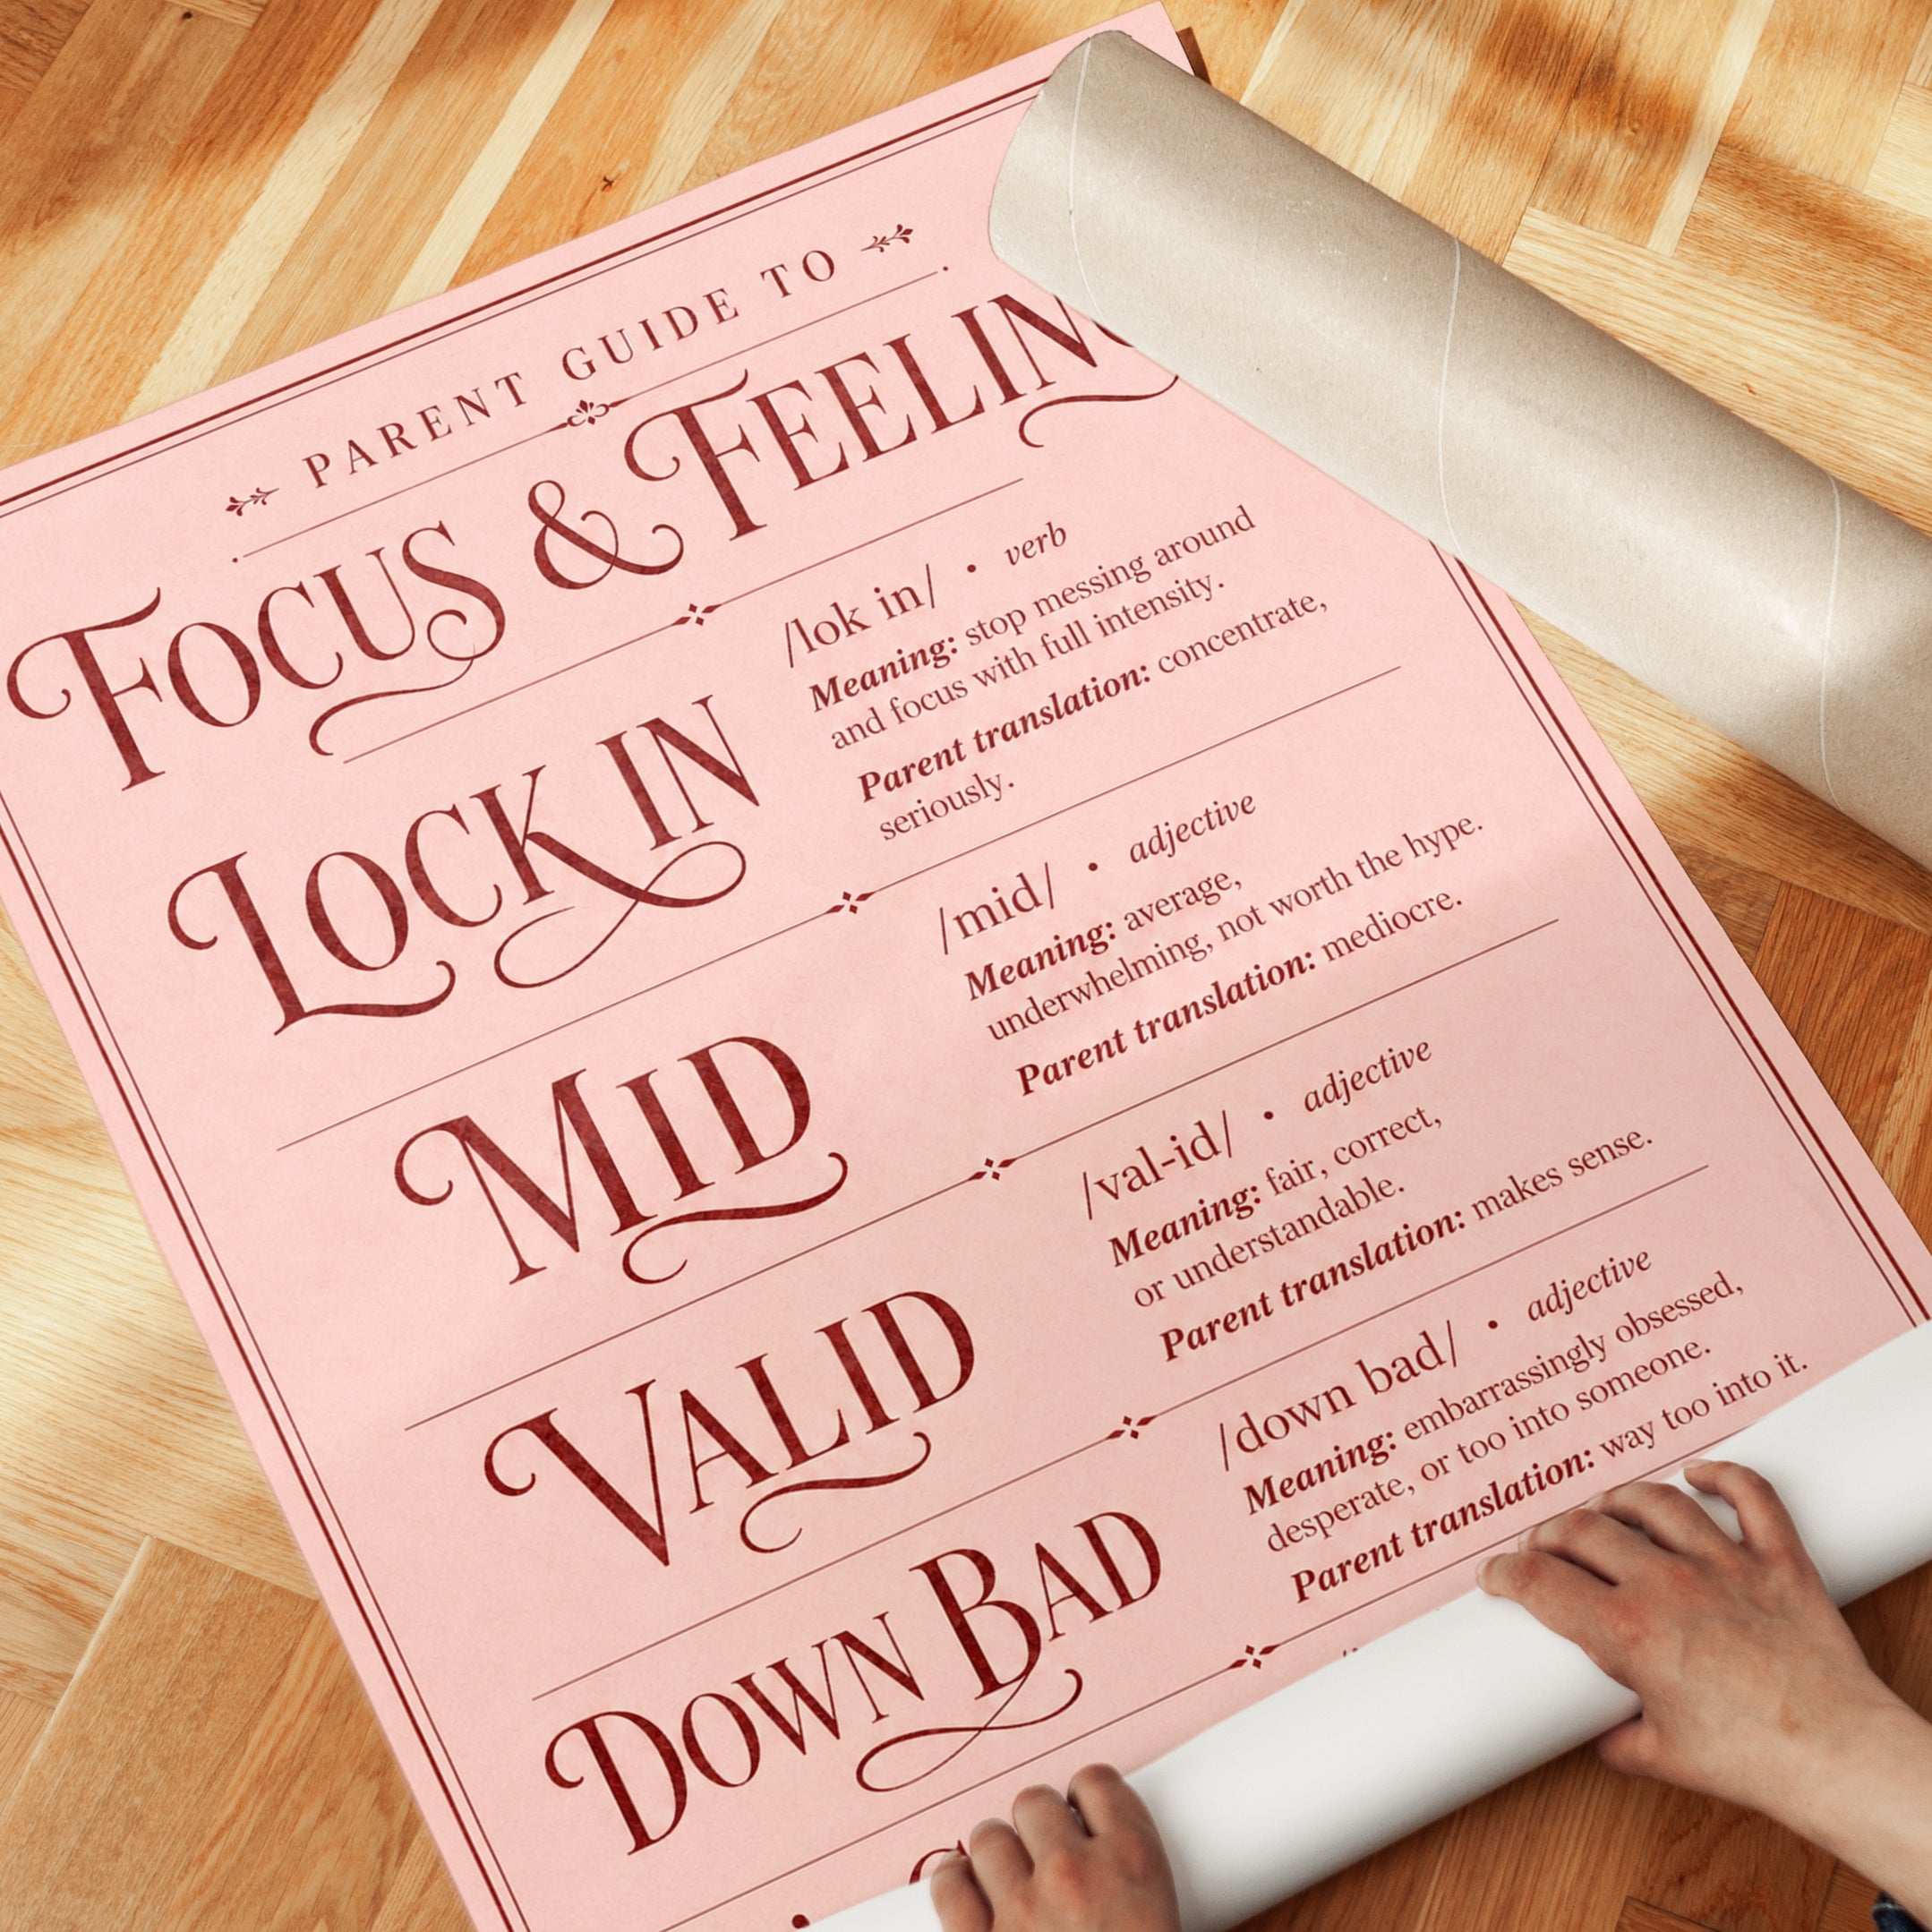 PARENT GUIDE TO
FOCUS & FEELIN
LOCK IN
/lok in/ • verb
Meaning: stop messing around
and focus with full intensity.
Parent translation: concentrate,
seriously.
MID
/mid/ • adjective
Meaning: average,
underwhelming, not worth the hype.
Parent translation: mediocre.
VALID
/val-id/ • adjective
Meaning: fair, correct,
or understandable.
Parent translation: makes sense.
DOWN BAD
/down bad/ • adjective
Meaning: embarrassingly obsessed,
desperate, or too into someone.
Parent translation: way too into it.